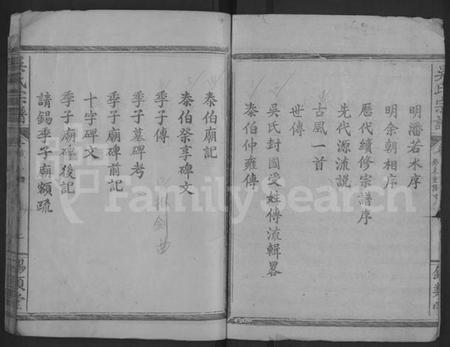 吳氏宗譜
明潘若水序
明余朝相序
歷代續修宗譜序
先代源流說
古風一首
世傳
吳氏封國受姓傳流輯畧
泰伯仲雍傳
泰伯廟記
泰伯祭享碑文
季子傳
季子墓碑考
季子廟碑前記
十字碑文
季子廟碑後記
請錫季子廟額疏
吳氏宗譜
FamilySearch